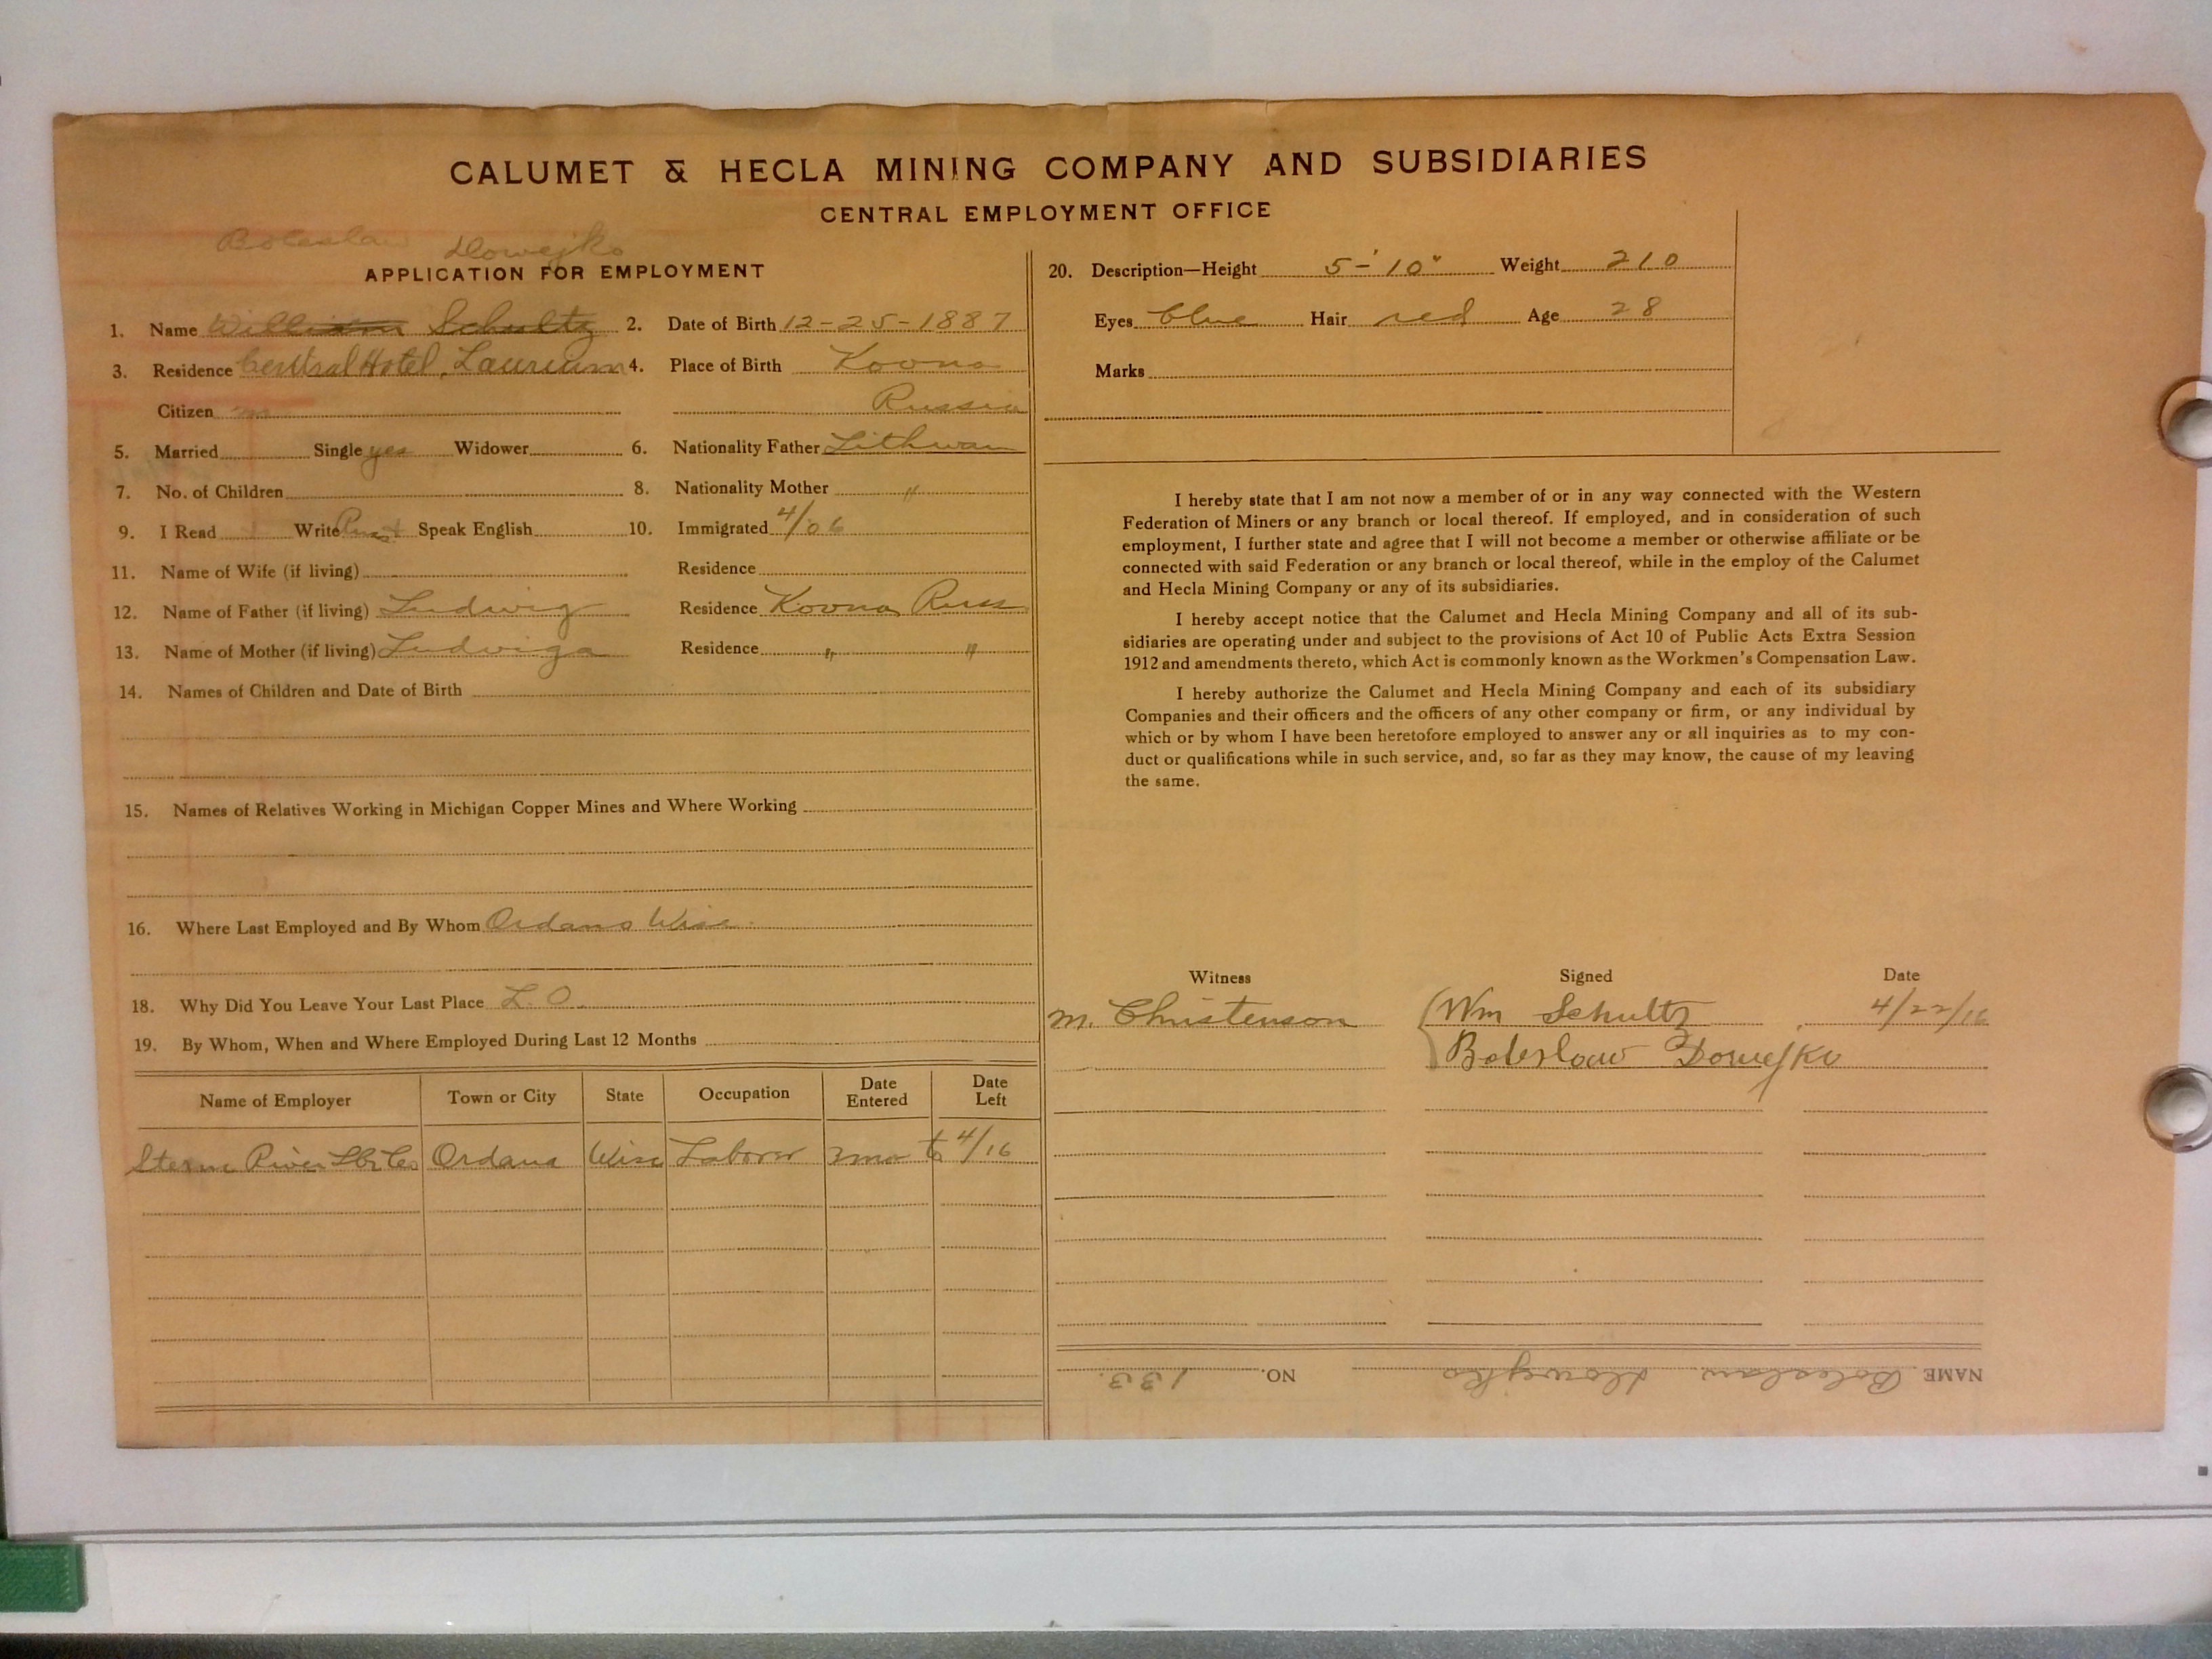 CALUMET & HECLA MINING COMPANY AND SUBSIDIARIES
CENTRAL EMPLOYMENT OFFICE
Boleslaw Dowejko
APPLICATION FOR EMPLOYMENT
1. Name William Schultz 2. Date of Birth 12-25-1887
3. Residence Central Hotel, Laurium 4. Place of Birth Kovno
Citizen Russia
5. Married Single yes Widower 6. Nationality Father Lithuan
7. No. of Children 8. Nationality Mother "
9. I Read Write Speak English 10. Immigrated 4/06
11. Name of Wife (if living) Residence
12. Name of Father (if living) Ludwig Residence Kovno, Russ
13. Name of Mother (if living) Ludwiga Residence " "
14. Names of Children and Date of Birth
15. Names of Relatives Working in Michigan Copper Mines and Where Working
16. Where Last Employed and By Whom Ordans Wisc.
18. Why Did You Leave Your Last Place L. O.
19. By Whom, When and Where Employed During Last 12 Months
Name of Employer Town or City State Occupation Date Entered Date Left
River Ordans Wisc Laborer mo to 4/16
20. Description—Height 5'-10" Weight 210
Eyes blue Hair red Age 28
Marks
I hereby state that I am not now a member of or in any way connected with the Western
Federation of Miners or any branch or local thereof. If employed, and in consideration of such
employment, I further state and agree that I will not become a member or otherwise affiliate or be
connected with said Federation or any branch or local thereof, while in the employ of the Calumet
and Hecla Mining Company or any of its subsidiaries.
I hereby accept notice that the Calumet and Hecla Mining Company and all of its sub-
sidiaries are operating under and subject to the provisions of Act 10 of Public Acts Extra Session
1912 and amendments thereto, which Act is commonly known as the Workmen's Compensation Law.
I hereby authorize the Calumet and Hecla Mining Company and each of its subsidiary
Companies and their officers and the officers of any other company or firm, or any individual by
which or by whom I have been heretofore employed to answer any or all inquiries as to my con-
duct or qualifications while in such service, and, so far as they may know, the cause of my leaving
the same.
Witness Signed Date
M. Christenson Wm Schultz 4/22/16
Boleslaw Dowejko
NAME Boleslaw Dowejko NO. 133.